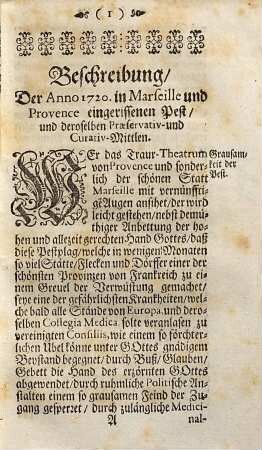 ( 1 )
Beschreibung/
Der Anno 1720. in Marseille und
Provence eingerissenen Pest/
und deroselben Præservativ-und
Curativ-Mittlen.
WEr das Traur-Theatrum
von Provence und sonder-
lich der schönen Statt
Marseille mit vernünffti-
gē Augen ansihet/der wird
leicht gestehen/nebst demü-
thiger Anbettung der ho-
hen und allezeit gerechten Hand Gottes/daß
diese Pestplag/welche in wenigen Monaten
so viel Stätte/Flecken und Dörffer einer der
schönsten Provinzen von Franckreich zu ei-
nem Greuel der Verwüstung gemachet/
seye eine der gefährlichsten Kranckheiten/wel-
che bald alle Stände von Europa, und dero-
selben Collegia Medica, solte veranlasen zu
vereinigten Consiliis, wie einem so förchter-
lichen Ubel könne unter GOttes gnädigem
Beystand begegnet/durch Buß/Glauben/
Gebett die Hand des erzörnten GOttes
abgewendet/durch ruhmliche Politische An-
stalten einem so grausamen Feind der Zu-
gang gesperret/durch zulängliche Medici-
A
nal-
Grausam-
keit der
Pest.